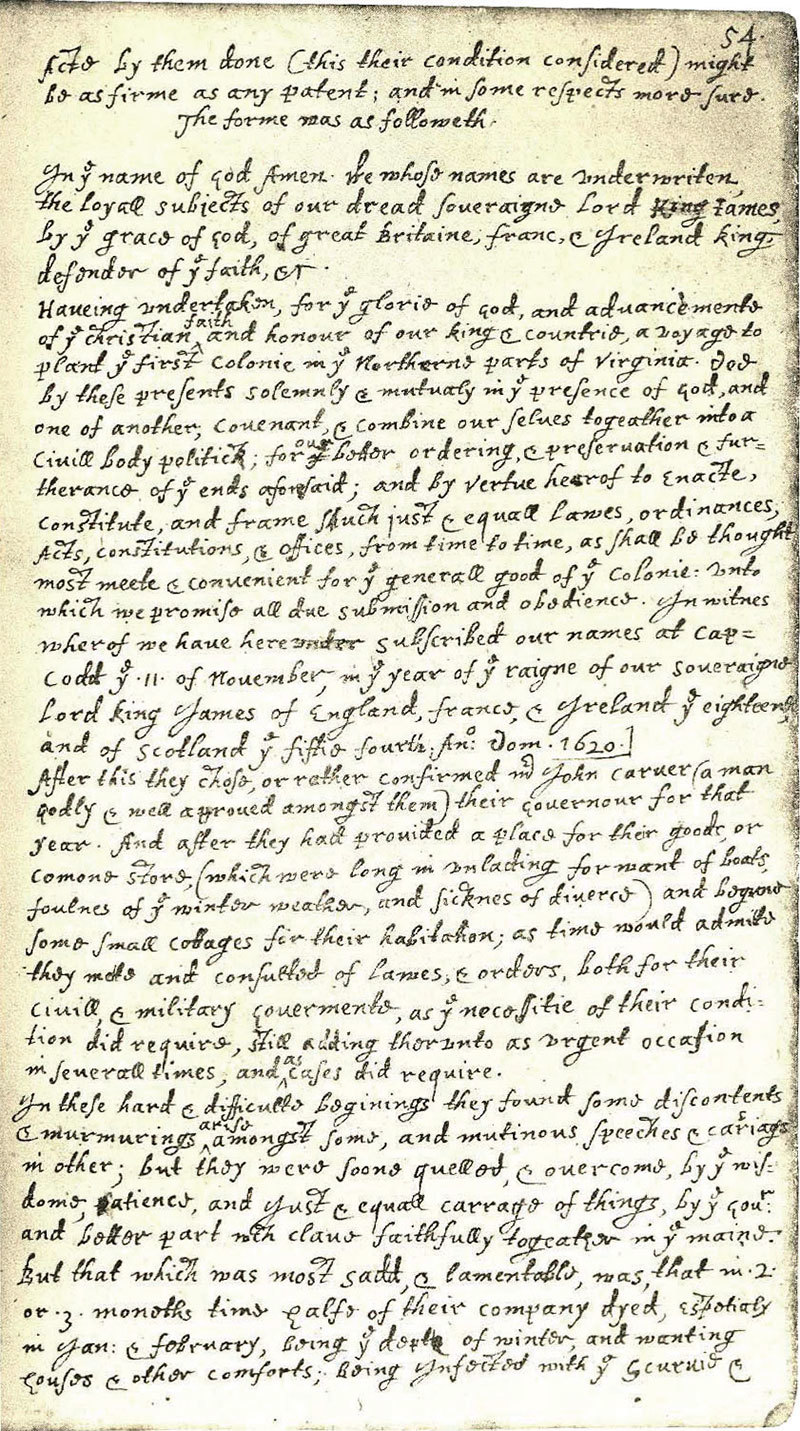 54.
Acts by them done (this their condition considered) might
be as firme as any patent; and in some respects more sure.
The forme was as followeth.
In yͤ name of god Amen. We whose names are underwriten,
the loyall subjects of our dread soveraigne Lord King James,
by yͤ grace of god, of great Britaine, franc, & Ireland king,
defender of yͤ faith, &c.
Haveing undertaken, for yͤ glorie of god, and advancemente
of yͤ christian faith and honour of our king & countrie, a voyage to
plant yͤ first colonie in yͤ Northerne parts of Virginia. Doe
by these presents solemnly & mutualy in yͤ presence of god, and
one of another; covenant, & combine our selves togeather into a
Civill body politick; for our better ordering, & preservation & fur=
therance of yͤ ends aforesaid; and by vertue hearof to Enacte,
constitute, and frame shuch just & equall Lawes, ordinances,
Acts, constitutions, & offices, from time to time, as shall be thought
most meete & convenient for yͤ generall good of yͤ Colonie: unto
which we promise all due submission and obedience. In witnes
wherof we have hereunder subscribed our names at Cap=
Codd yͤ .11. of November, in yͤ year of yͤ raigne of our soveraigne
Lord king James of England, france, & Ireland yͤ eighteenth
and of Scotland yͤ fiftie fourth; Anͦ: Dom. 1620.]
After this they chose, or rather confirmed mͬ John Carver (a man
godly & well approved amongst them) their Governour for that
year. And after they had provided a place for their goods, or
comone store, (which were long in unlading for want of boats,
foulnes of yͤ winter weather, and sicknes of diverce) and begune
some small cottages for their habitation; as time would admitte
they mette and consulted of lawes, & orders, both for their
civill, & military Govermente, as yͤ necessitie of their condi=
tion did require, still adding therunto as urgent occasion
in severall times, and as cases did require.
In these hard & difficulte beginings they found some discontents
& murmurings arise amongst some, and mutinous speeches & cariags
in other; but they were soone quelled, & overcome, by yͤ wis=
dome, patience, and Just & equall carrage of things, by yͤ Govͬ.
and better part wch clave faithfully togeather in yͤ maine.
But that which was most sadd, & lamentable, was, that in .2.
or .3. moneths time halfe of their company dyed, espetialy
in Jan: & february, being yͤ depth of winter, and wanting
houses & other comforts; being Infected with yͤ Scurvie &